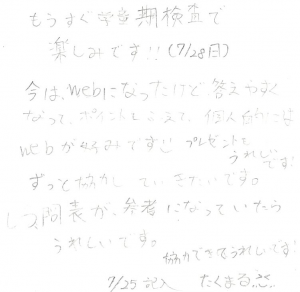 もうすぐ学童期検査で
楽しみです!!(7/28日)
今は、webになったけど、答えやすく
なって、ポイントももらえて、個人的には
webが好みです!! プレゼントも
うれしい
です!
ずっと協力していきたいです。
質問表が、参考になっていたら
うれしいです。
協力できてうれしいです!
7/25 記入 たくまる